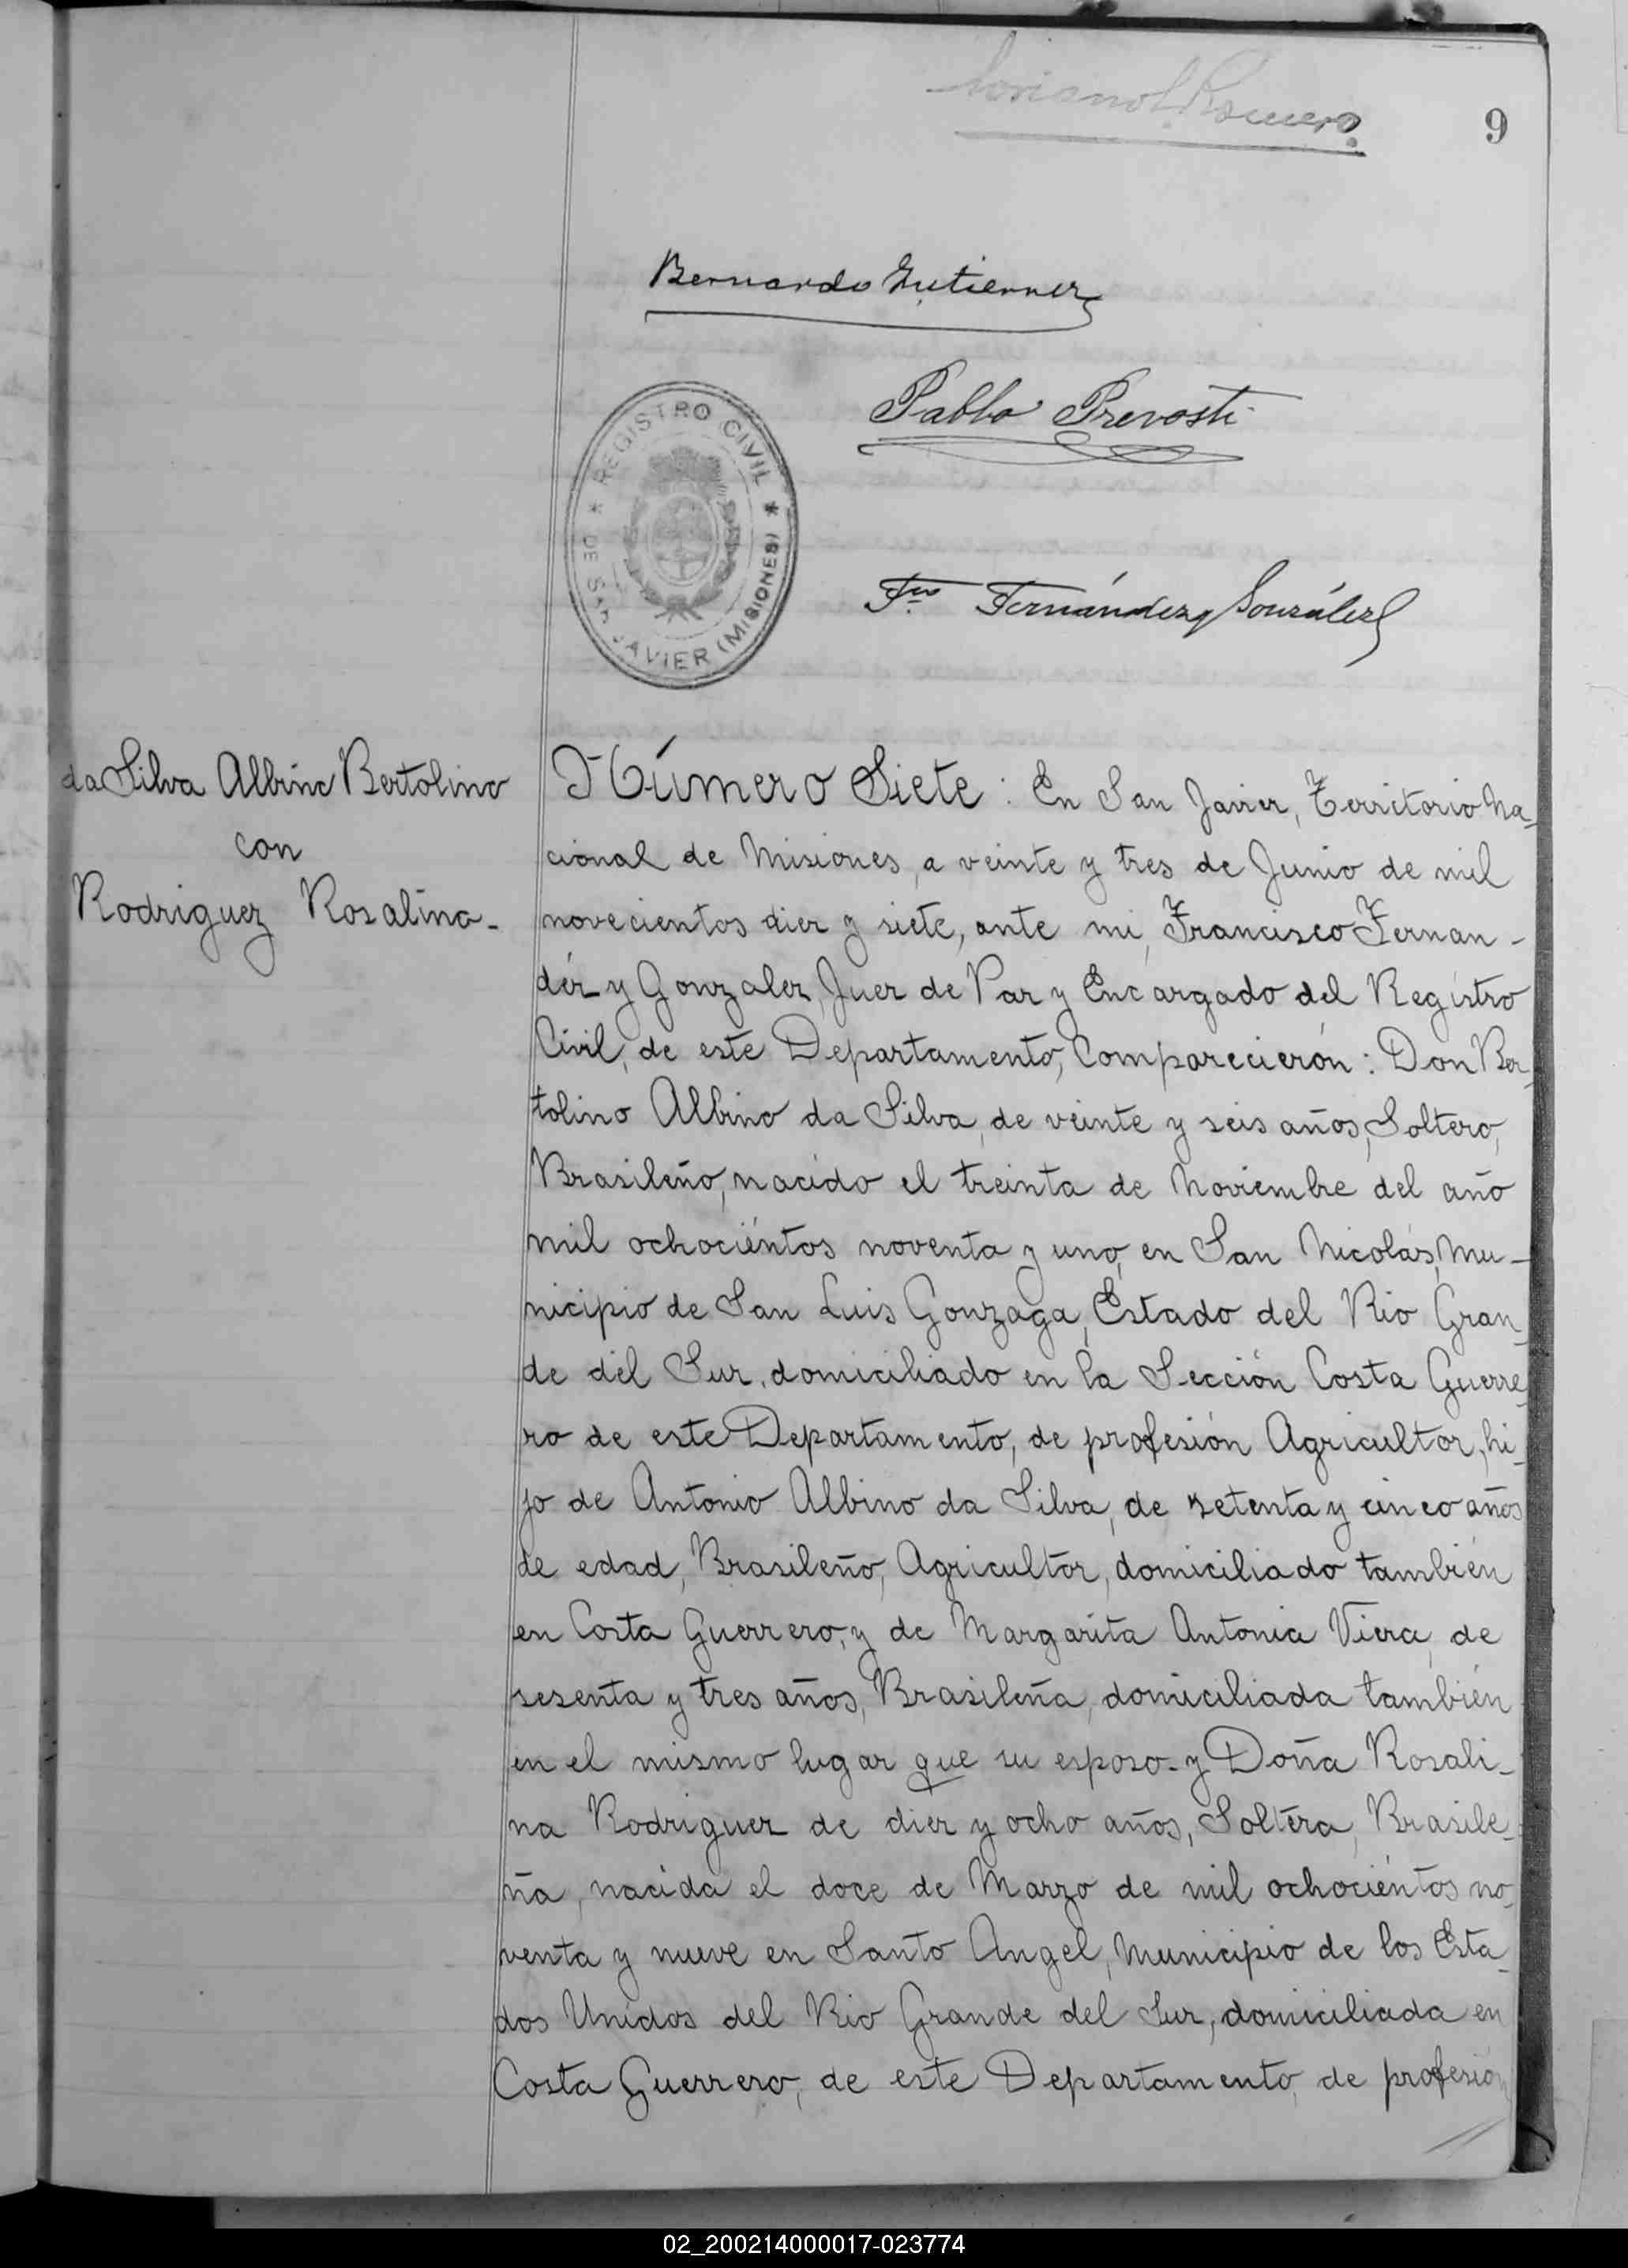 9
Bernardo Gutierrez
Pablo Prevosti
REGISTRO CIVIL
DE SAN JAVIER (MISIONES)
Fco Fernández y González
da Silva Albino Bertolino
con
Rodriguez Rosalina-
Número Siete: En San Javier, Territorio Na-
cional de Misiones, a veinte y tres de Junio de mil
novecientos diez y siete, ante mi, Francisco Fernan-
déz y Gonzalez, Juez de Paz y Encargado del Registro
Civil, de este Departamento, Comparecierón: Don Ber-
tolino Albino da Silva, de veinte y seis años, Soltero,
Brasileño, nacido el treinta de Noviembre del año
mil ochociéntos noventa y uno, en San Nicolás, Mu-
nicipio de San Luis Gonzaga, Estado del Rio Gran-
de del Sur, domiciliado en la Sección Costa Guerre-
ro de este Departamento, de profesión Agricultor, hi-
jo de Antonio Albino da Silva, de setenta y cinco años
de edad, Brasileño, Agricultor, domiciliado también
en Costa Guerrero, y de Margarita Antonia Viera, de
sesenta y tres años, Brasileña, domiciliada también
en el mismo lugar que su esposo- y Doña Rosali-
na Rodriguez de diez y ocho años, Soltéra, Brasile-
ña, nacida el doce de Marzo de mil ochociéntos no-
venta y nueve en Santo Angel, Municipio de los Esta-
dos Unidos del Rio Grande del Sur, domiciliada en
Costa Guerrero, de este Departamento, de profesión
02_200214000017-023774